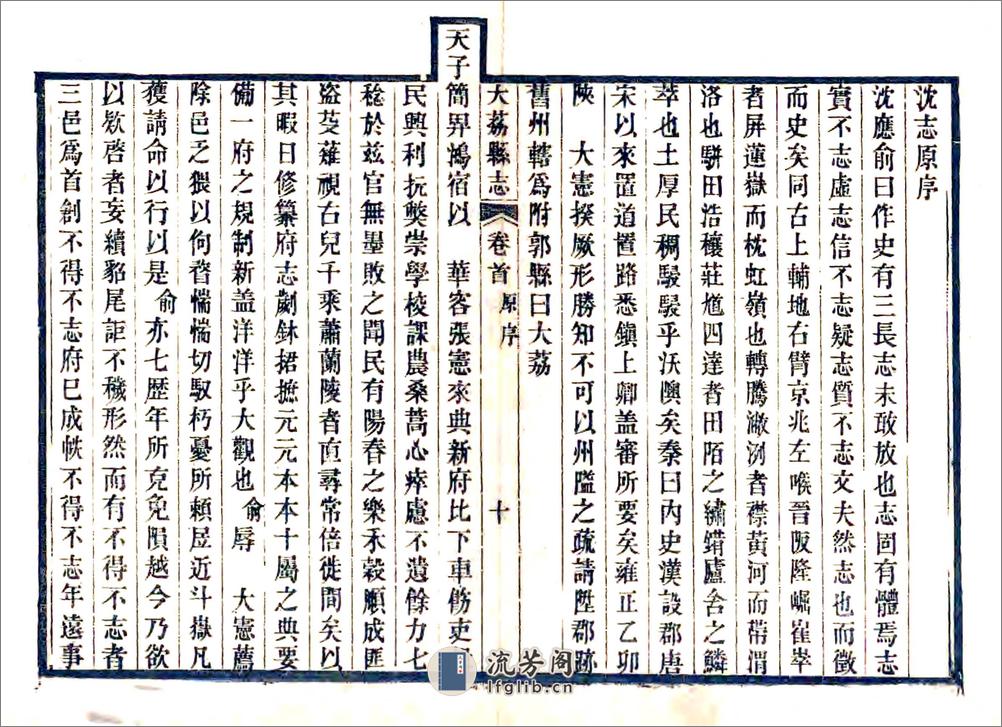 沈志原序
沈應俞曰作史有三長志未敢放也志固有體焉志
實不志虛志信不志疑志質不志文夫然志也而徵
而史矣同古上輔地右臂京兆左喉晉阪隆崛崔崒
者屏蓮嶽而枕虹嶺也轉騰潎洌者襟黃河而帶渭
洛也駢田浩穰莊馗四達者田陌之繡錯廬舍之鱗
萃也土厚民稠駸駸乎沃隩矣秦曰內史漢設郡唐
宋以來置道置路悉鎭上卿盖審所要矣雍正乙卯
陝 大憲揆厥形勝知不可以州隘之疏請陞郡跡
舊州轄爲附郭縣曰大荔
大荔縣志 卷首 原序 十
天子簡畀鴻宿以 華容張憲來典新府比下車傷吏
民興利抏獘崇學校課農桑蒿心瘁慮不遺餘力七
稔於玆官無墨敗之聞民有陽春之樂禾穀順成匪
盜芟薙視右兒千乘蕭蘭陵者直尋常倍徙間矣以
其暇日修纂府志劌鉥捃摭元元本本十屬之典要
備一府之規制新盖洋洋乎大觀也俞辱 大憲薦
除邑乏猥以佝瞀惴惴切馭朽憂所賴昱近斗嶽凡
獲請命以行以是俞亦七歷年所克免隕越今乃欲
以欵啓者妄續貂尾詎不穢形然而有不得不志者
三邑爲首創不得不志府已成帙不得不志年遠事
流芳阁
lfglib.cn